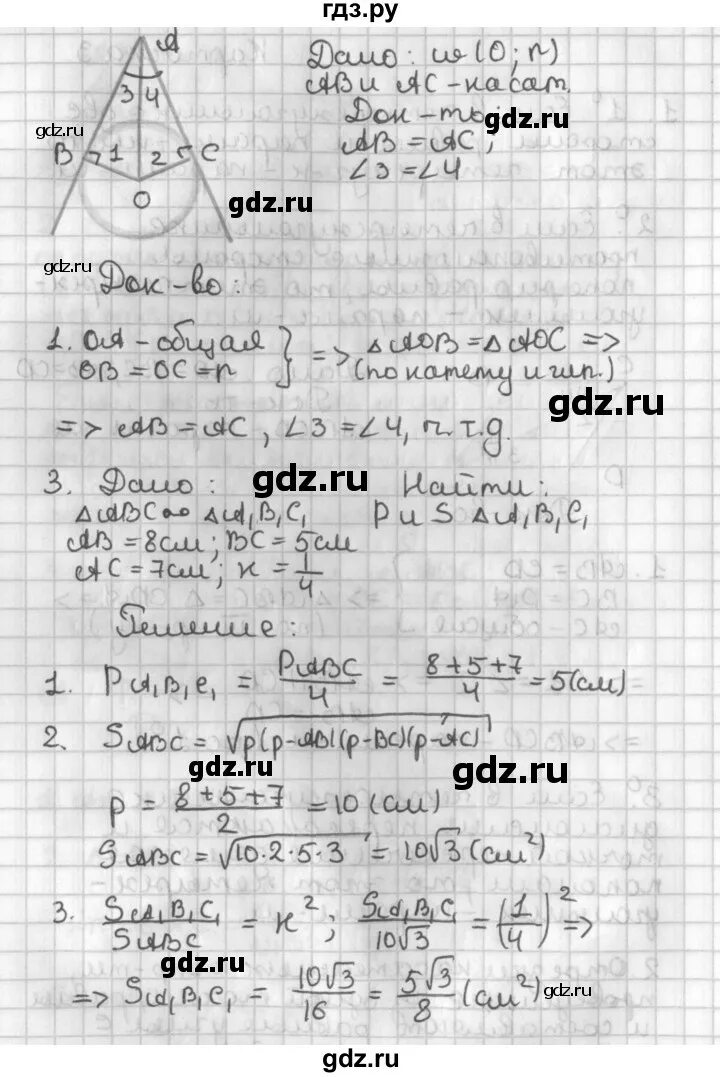 гдз.ру
A
3 4
B 1 2 C
O
Дано: w(O; r)
AB и AC - касат.
Док-ть:
AB = AC;
∠3 = ∠4
gdz.ru
gdz.ru
gdz.ru
gdz.ru
Док-во:
1. OA - общая
OB = OC = r
} => △AOB = △AOC =>
(по катету и гип.)
gdz.ru
=> AB = AC, ∠3 = ∠4, ч.т.д.
3. Дано:
gdz.ru
Найти:
△ABC ∾ △A₁B₁C₁
P и S △A₁B₁C₁
AB = 8см; BC = 5см
AC = 7см; к = 1/4
Решение:
1. P A₁B₁C₁ = P ABC/4 = (8+5+7)/4 = 5(см)
2. S ABC = √(p(p-AB)(p-BC)(p-AC))
gdz.ru
gdz.ru
p = (8+5+7)/2 = 10(см)
S ABC = √(10·2·5·3) = 10√3(см²)
3. S A₁B₁C₁/S ABC = к²; S A₁B₁C₁/10√3 = (1/4)² =>
gdz.ru
=> S A₁B₁C₁ = 10√3/16 = 5√3/8(см²)
gdz.ru
gdz.ru